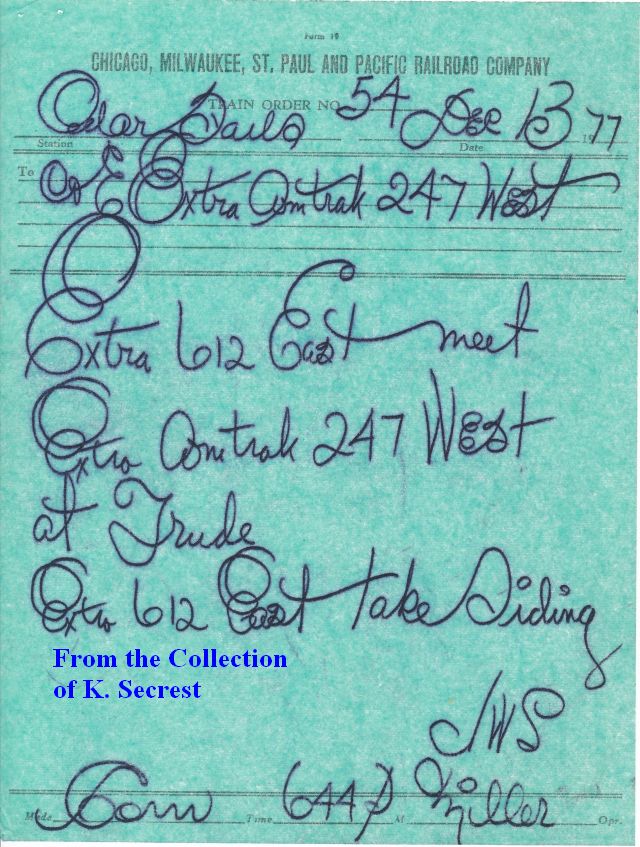 Form 19
CHICAGO, MILWAUKEE, ST. PAUL AND PACIFIC RAILROAD COMPANY
TRAIN ORDER NO. 54 Dec 13 1977
Cedar Falls
Station Date
To C&E Extra Amtrak 247 West
Extra 612 East meet
Extra Amtrak 247 West
at Trude
Extra 612 East take Siding
From the Collection
of K. Secrest
JWS
Made Com Time 644 P M Miller Opr.